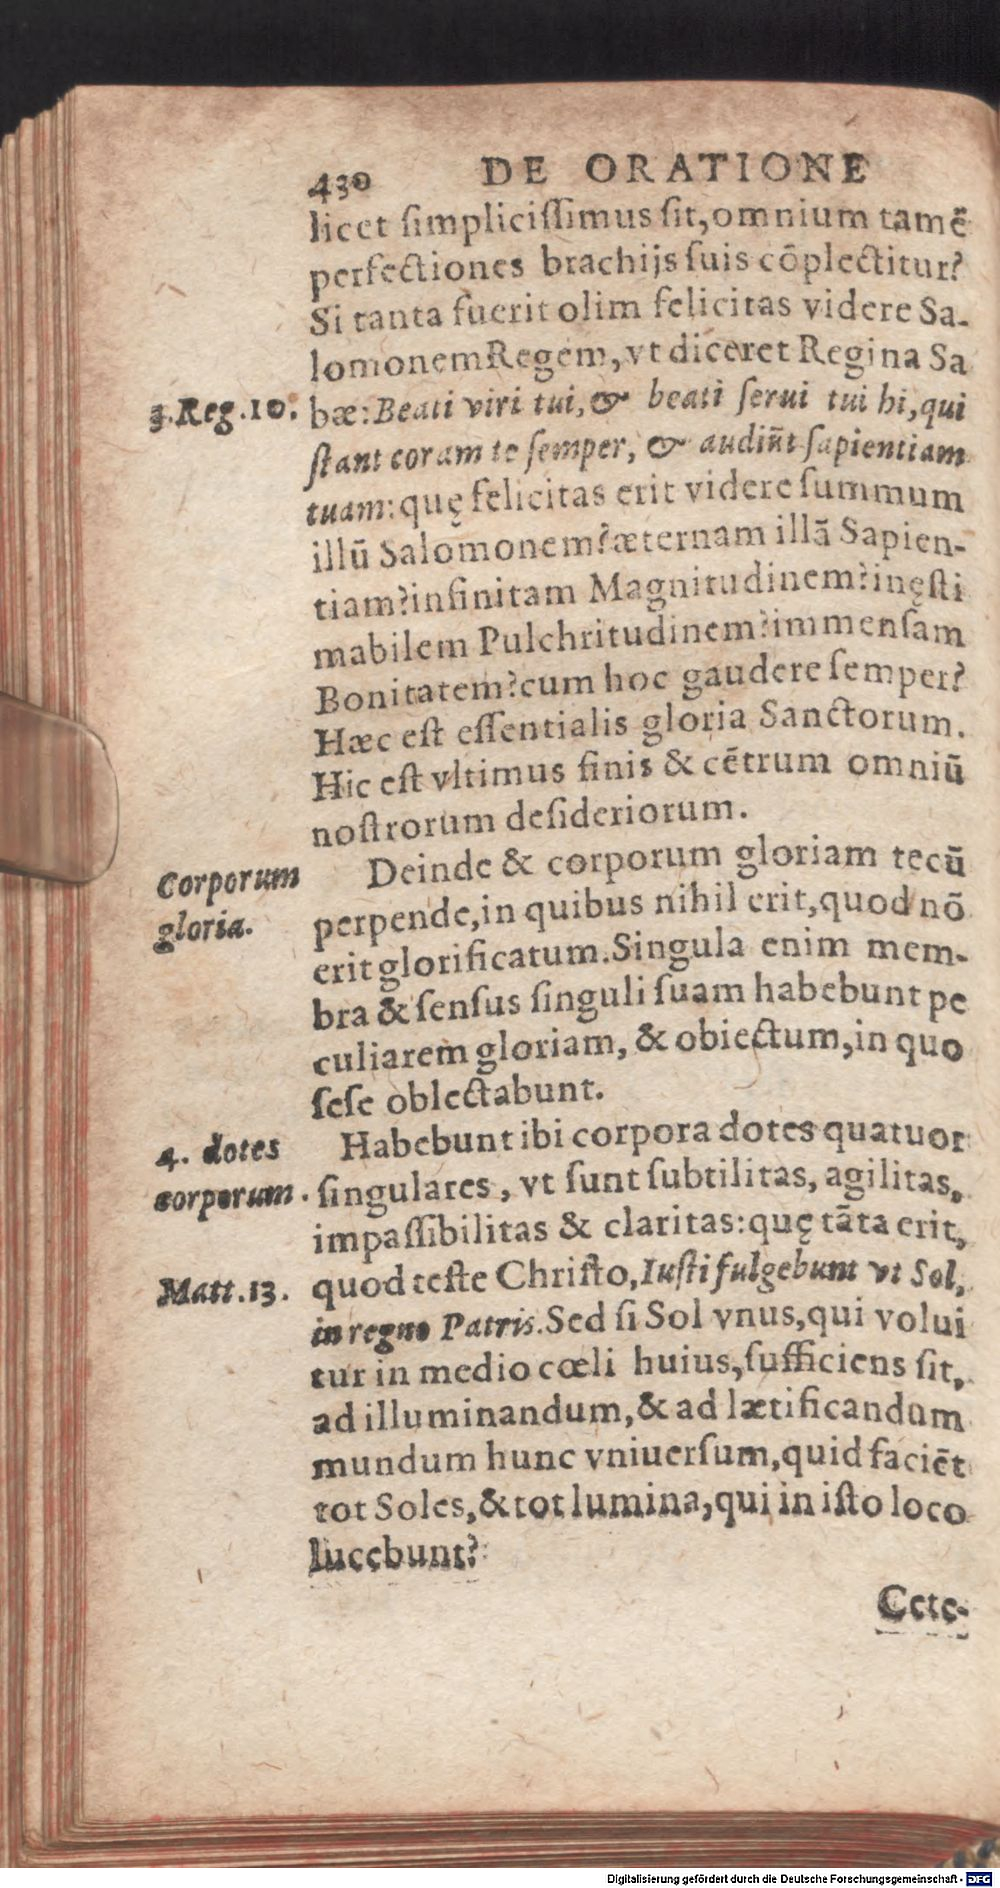 430 DE ORATIONE
licet ſimpliciſſimus ſit, omnium tamẽ
perfectiones brachijs ſuis cõplectitur?
Si tanta fuerit olim felicitas videre Sa-
lomonem Regem, vt diceret Regina Sa
3. Reg. 10.
bæ: Beati viri tui, & beati ſerui tui hi, qui
ſtant coram te ſemper, & audiũt ſapientiam
tuam: quę felicitas erit videre ſummum
illũ Salomonem? æternam illã Sapien-
tiam? infinitam Magnitudinem? inęſti
mabilem Pulchritudinem? immenſam
Bonitatem? cum hoc gaudere ſemper?
Hæc eſt eſſentialis gloria Sanctorum.
Hic eſt vltimus finis & cẽtrum omniũ
noſtrorum deſideriorum.
Corporum
gloria.
Deinde & corporum gloriam tecũ
perpende, in quibus nihil erit, quod nõ
erit glorificatum. Singula enim mem-
bra & ſenſus ſinguli ſuam habebunt pe
culiarem gloriam, & obiectum, in quo
ſeſe oblectabunt.
4. dotes
corporum.
Habebunt ibi corpora dotes quatuor
ſingulares, vt ſunt ſubtilitas, agilitas,
impaſſibilitas & claritas: quę tãta erit,
Matt. 13.
quod teſte Chriſto, Iuſti fulgebunt vt Sol,
in regno Patris. Sed ſi Sol vnus, qui volui
tur in medio cœli huius, ſufficiens ſit,
ad illuminandum, & ad lætificandum
mundum hunc vniuerſum, quid faciẽt
tot Soles, & tot lumina, qui in iſto loco
lucebunt?
Cete-
Digitalisierung gefördert durch die Deutsche Forschungsgemeinschaft - DFG